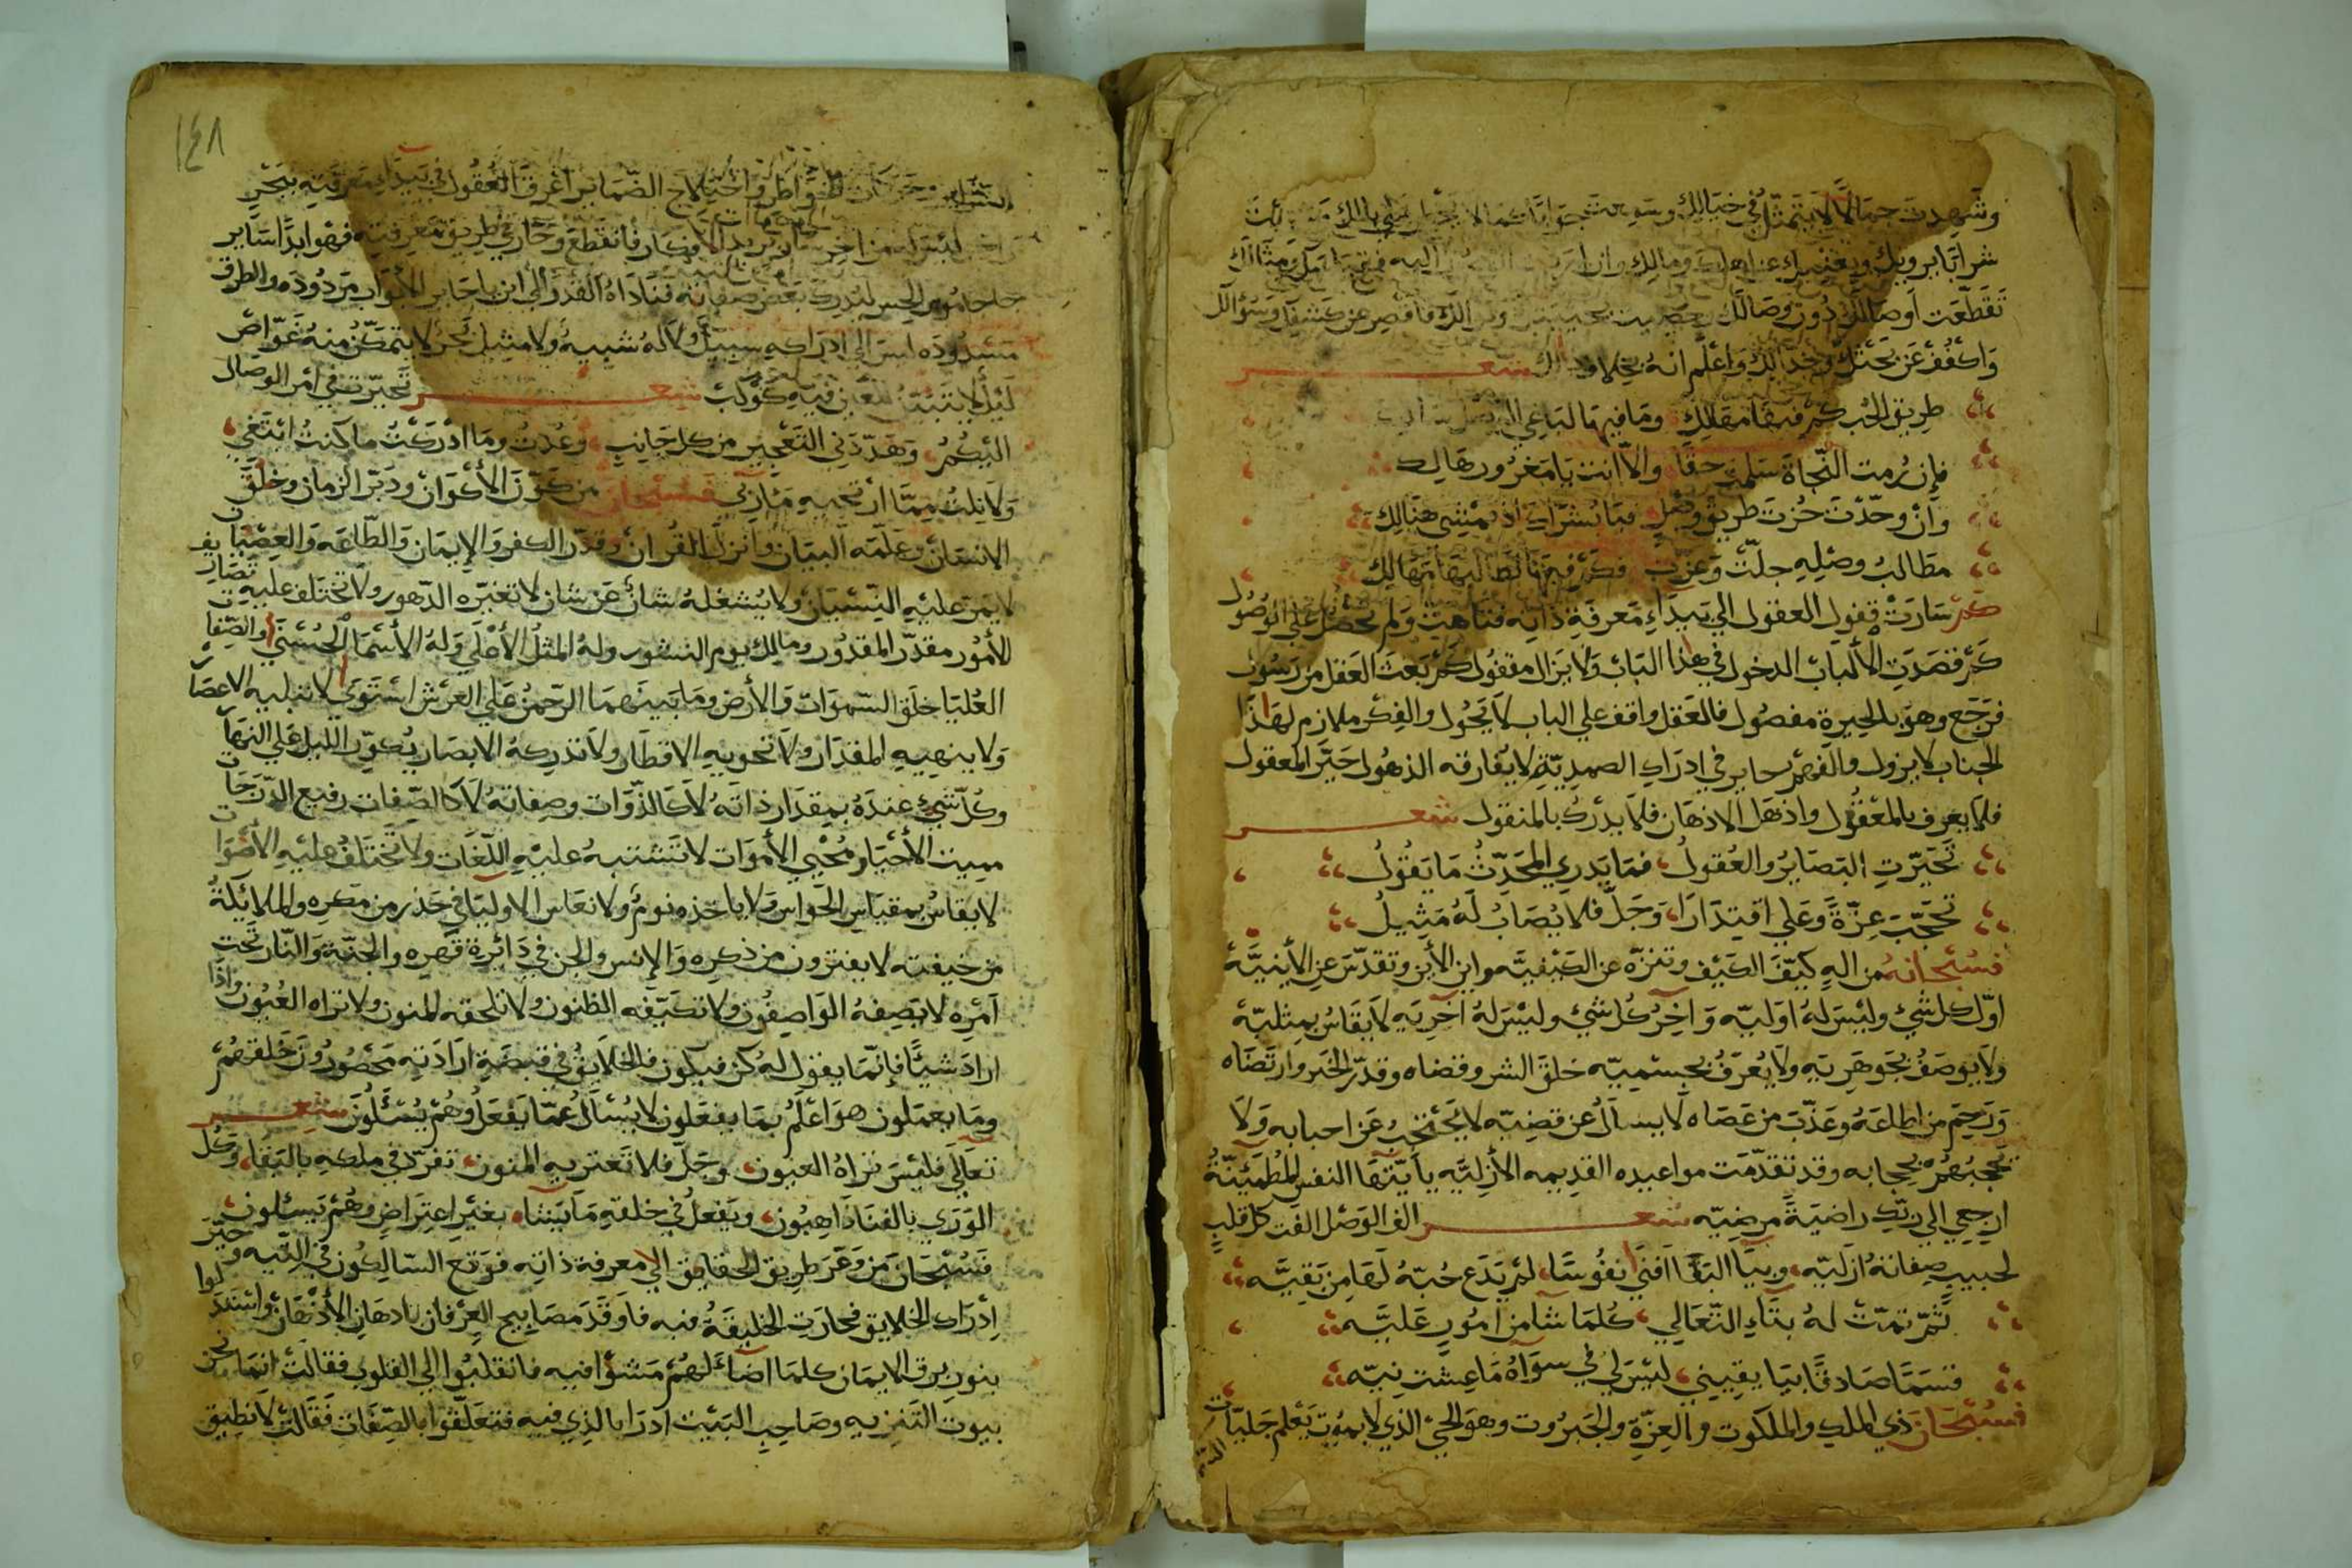 وشهدت جمالًا لا يتمثل في خيالك وسمعت جوابا
شرابا يرويك ويغنيك عن اهلك ومالك وان
تقطعت أوصالك دون وصالك فاقصر عن كشفك وسؤالك
واكفف عن بحثك وجدالك وأعلم انه بخلاف ذلك شعر
طريق الحب كم فيها مهالك وما فيها لباغي
فإن رمت النجاة سلمت حقا والا انت يا مغرور هالك
وان وحدت حزت طريق وصل فيا بشراك اذ تمشي هنالك
مطالب وصله جلت وعزت فكم فيها لطالبها مهالك
كم سارت قفول العقول الي بيداء معرفة ذاته فتاهت ولم تحصل علي الوصول
كم قصدت الألباب الدخول في هذا الباب ولا يزال مقفول كم بعث العقل من رسول
فرجع وهو بالحيرة مفصول فالعقل واقف علي الباب لا يحول والفكر ملازم لهذا
الجناب لا يزول والفهم حاير في ادراك الصمدية لا يفارقه الذهول حير المعقول
فلا يعرف بالمعقول واذهل الاذهان فلا يدرك بالمنقول شعر
تحيرت البصاير والعقول فما يدري المحدث ما يقول
تحجب عزة وعلي اقتدارا وجل فلا يصاب له مثيل
فسبحانه من اله كيف الكيف وتنزه عن الكيفيه واين الأين وتقدس عن الأينيه
اول كل شيء وليس له اوليه وآخر كل شيء وليس له آخريه لا يقاس بمثليه
ولا يوصف بجوهريه ولا يعرف بجسميه خلق الشر وقضاه وقدر الخير وارتضاه
ورحم من اطاعه وعذب من عصاه لا يسأل عن قضيه لا يحتجب عن احبابه ولا
يحجبهم بحجابه وقد تقدمت مواعيده القديمه الأزليه يا أيتها النفس المطمئنة
ارجعي الي ربك راضية مرضيه شعر الف الوصل الفت كل قلب
لحبيب صفاته ازليه وبيا البقا افني نفوسا لم يدع حبه لها من بقيه
ثم تمت له بتاء التعالي كلما شا من امور عليه
قسما صادقا بيا يقيني ليس لي في سواه ما عشت نيه
فسبحان ذي الملك والملكوت والعزة والجبروت وهو الحي الذي لا يموت يعلم جليات
السراير واختلاج الضماير اغرق العقول في بيداء معرفته ببحر
ليس له من آخر الأفكار فانقطع وحار في طريق معرفته فهو ابدا ساير
الحس ليدرك بعض صفاته فناداه القدر الي اين يا حاير الأبواب مردوده والطرق
مسدوده ليس الي ادراكه سبيل ولا له شبيه ولا مثيل بحر لا يتمكن منه غواص
ليل لا فيه كوكب شعر تحيرت في امر الوصال
اليكم وهددني التعجير من كل جانب وعدت وما ادركت ما كنت ابتغي
ولا نلت مما ارتجيه ماربي فسبحان من كون الأكوان ودبر الزمان وخلق
الانسان وعلمه البيان وانزل القرآن وقدر الكفر والإيمان والطاعة والعصيان
لا يمر عليه النسيان ولا يشغله شان عن شان لا تغيره الدهور ولا تختلف عليه تصاريف
الأمور مقدر المقدور ومالك يوم النشور وله المثل الأعلي وله الأسما الحسني والصفات
العليا خلق السموات والأرض وما بينهما الرحمن علي العرش استوي لا تبليه الاعصار
ولا ينهيه المقدار ولا تحويه الاقطار ولا تدركه الابصار يكور الليل علي النهار
وكل شيء عنده بمقدار ذاته لا كالذوات وصفاته لا كالصفات رفيع الدرجات
مميت الأحيا ومحيي الأموات لا تشتبه عليه اللغات ولا تختلف عليه الأصوات
لا يقاس بمقياس الحواس ولا ياخذه نوم ولا نعاس الاوليا في حذر من مكره والملائكة
من خيفته لا يفترون من ذكره والإنس والجن في دائرة قهره والجنة والنار تحت
أمره لا يصفه الواصفون ولا تكيفه الظنون ولا تلحقه المنون ولا تراه العيون واذا
اراد شيئا فإنما يقول له كن فيكون فالخلايق في قبضة ارادته محصورون خلقهم
وما يعملون هو اعلم بما يفعلون لا يسأل عما يفعل وهم يسئلون شعر
تعالي فليس تراه العيون وجل فلا تعتريه المنون تفرد في ملكه بالبقا وكل
الوري بالفنا ذاهبون ويفعل في خلقه ما يشا بغير اعتراض وهم يسئلون
فسبحان من وعر طريق الحقايق الي معرفة ذاته فوقع السالكون في التيه وحير
إدراك الخلايق فحارت الخليقة فيه فاوقد مصابيح العرفان بادهان الأذهان واستدلوا
بنور برق الايمان كلما اضاء لهم مشوا فيه فانقلبوا الي القلوب فقالت انما نحن
بيوت التنزيه وصاحب البيت ادرا بالذي فيه فتعلقوا بالصفات فقالت لا نطيق
١٤٨